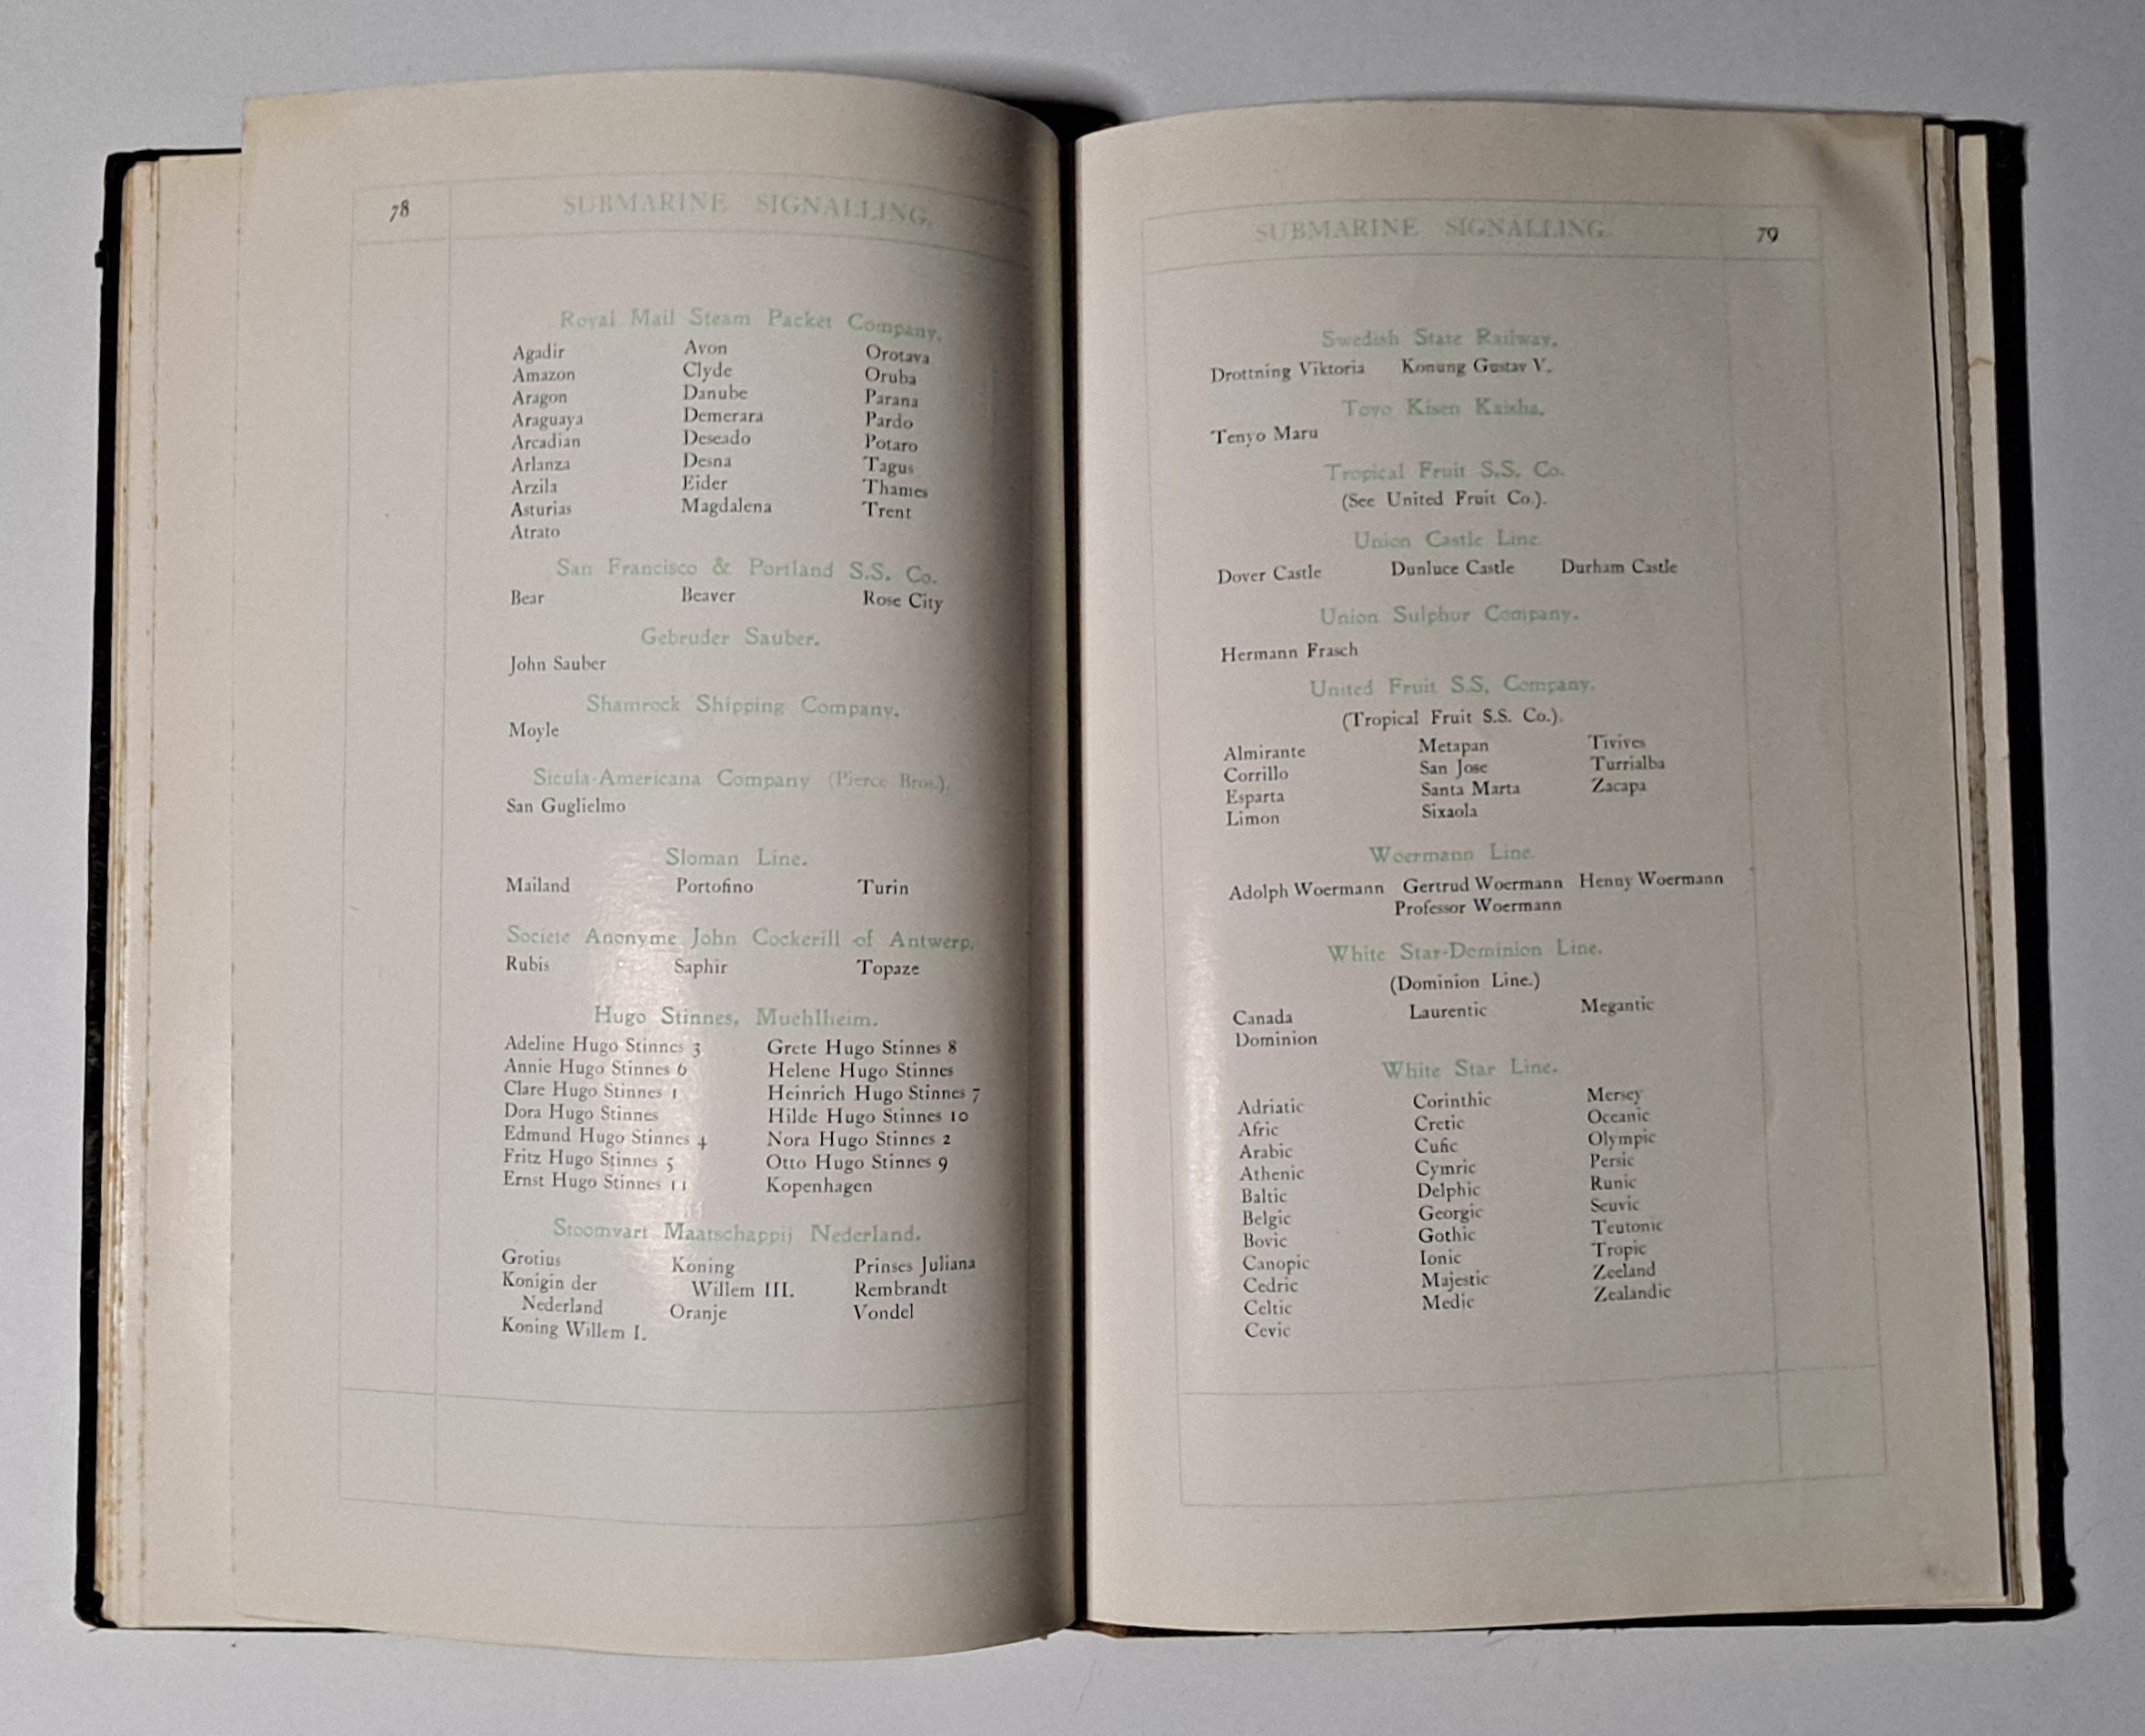 78
SUBMARINE SIGNALLING.
Royal Mail Steam Packet Company.
Agadir Avon Orotava
Amazon Clyde Oruba
Aragon Danube Parana
Araguaya Demerara Pardo
Arcadian Deseado Potaro
Arlanza Desna Tagus
Arzila Eider Thames
Asturias Magdalena Trent
Atrato
San Francisco & Portland S.S. Co.
Bear Beaver Rose City
Gebruder Sauber.
John Sauber
Shamrock Shipping Company.
Moyle
Sicula-Americana Company (Pierce Bros.).
San Guglielmo
Sloman Line.
Mailand Portofino Turin
Societe Anonyme John Cockerill of Antwerp.
Rubis Saphir Topaze
Hugo Stinnes, Muehlheim.
Adeline Hugo Stinnes 3 Grete Hugo Stinnes 8
Annie Hugo Stinnes 6 Helene Hugo Stinnes
Clare Hugo Stinnes 1 Heinrich Hugo Stinnes 7
Dora Hugo Stinnes Hilde Hugo Stinnes 10
Edmund Hugo Stinnes 4 Nora Hugo Stinnes 2
Fritz Hugo Stinnes 5 Otto Hugo Stinnes 9
Ernst Hugo Stinnes 11 Kopenhagen
Stoomvart Maatschappij Nederland.
Grotius Koning Prinses Juliana
Konigin der Willem III. Rembrandt
Nederland Oranje Vondel
Koning Willem I.
SUBMARINE SIGNALLING.
79
Swedish State Railway.
Drottning Viktoria Konung Gustav V.
Toyo Kisen Kaisha.
Tenyo Maru
Tropical Fruit S.S. Co.
(See United Fruit Co.).
Union Castle Line.
Dover Castle Dunluce Castle Durham Castle
Union Sulphur Company.
Hermann Frasch
United Fruit S.S. Company.
(Tropical Fruit S.S. Co.).
Almirante Metapan Tivives
Corrillo San Jose Turrialba
Esparta Santa Marta Zacapa
Limon Sixaola
Woermann Line.
Adolph Woermann Gertrud Woermann Henny Woermann
Professor Woermann
White Star-Dominion Line.
(Dominion Line.)
Canada Laurentic Megantic
Dominion
White Star Line.
Adriatic Corinthic Mersey
Afric Cretic Oceanic
Arabic Cufic Olympic
Athenic Cymric Persic
Baltic Delphic Runic
Belgic Georgic Seuvic
Bovic Gothic Teutonic
Canopic Ionic Tropic
Cedric Majestic Zeeland
Celtic Medic Zealandic
Cevic